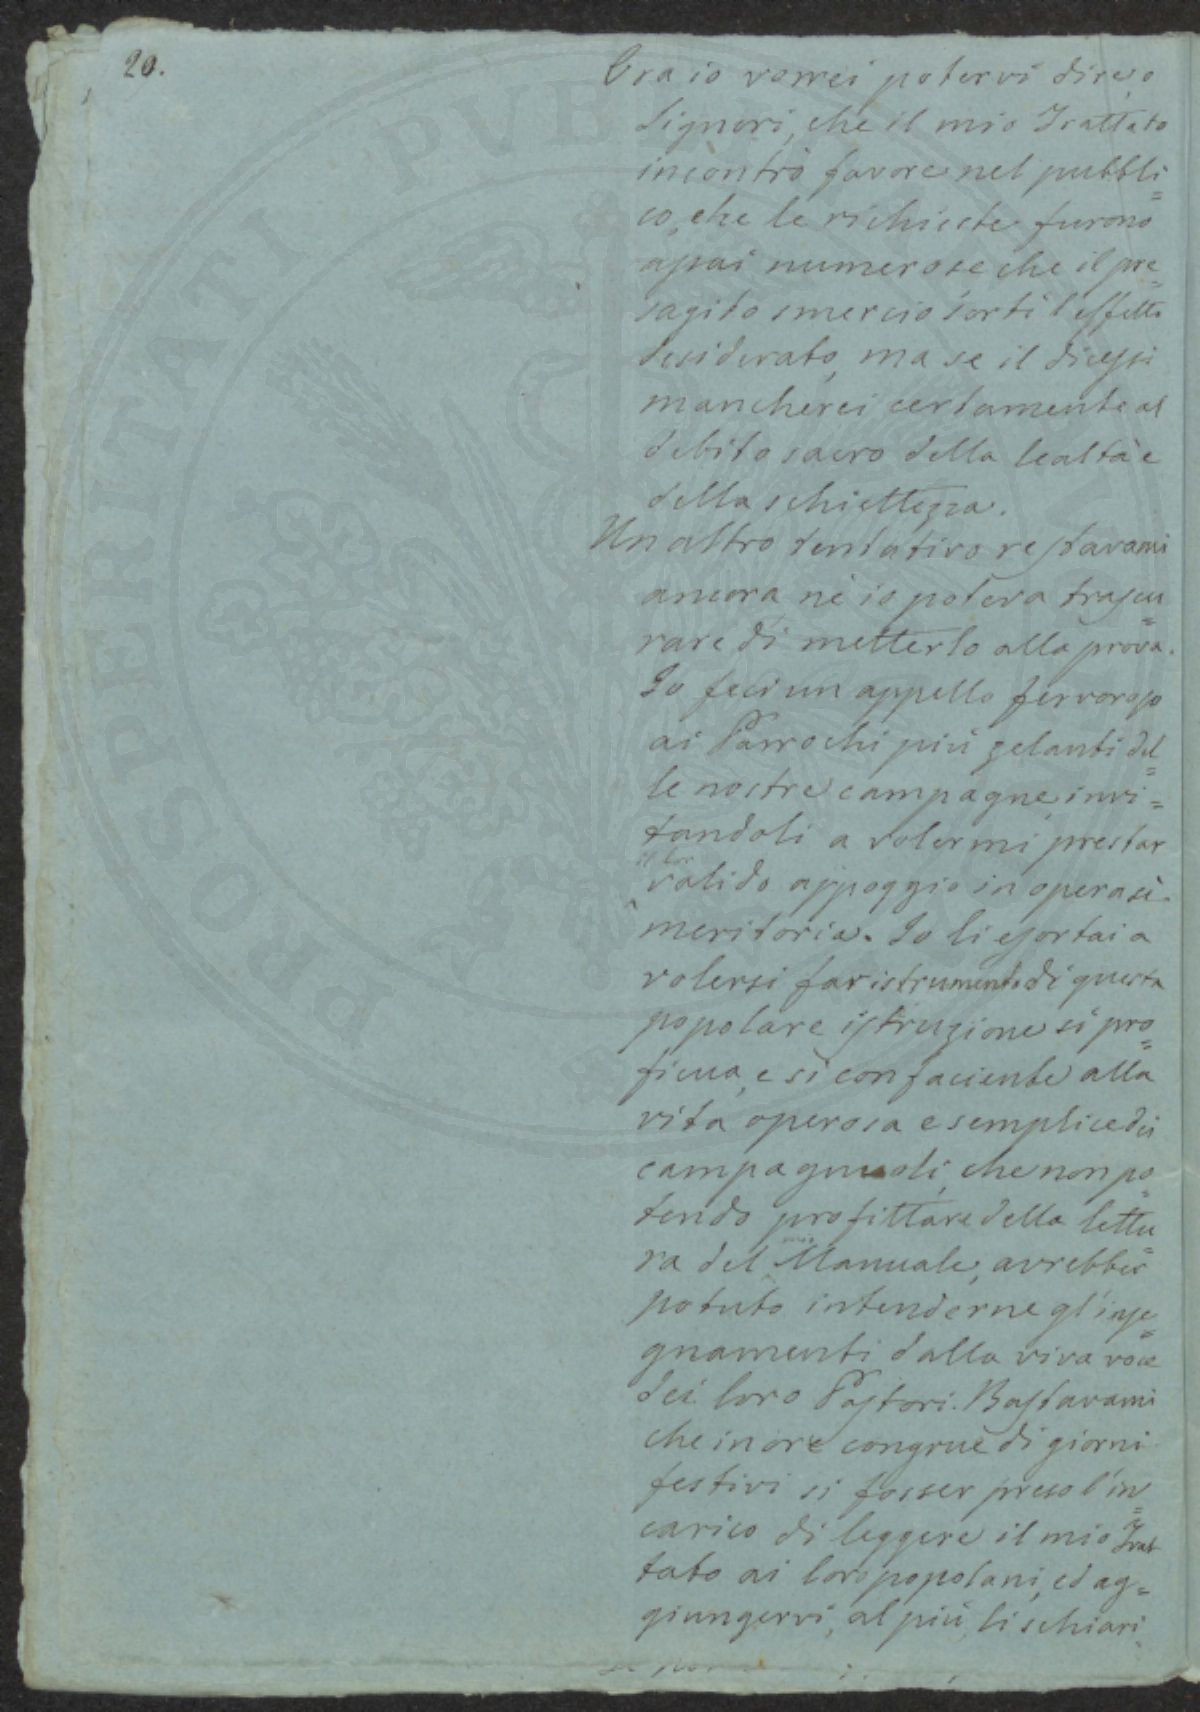 20.
Ora io vorrei potervi dire, o
Signori, che il mio Trattato
incontrò favore nel pubbli=
co, che le richieste furono
assai numerose che il pre=
sagito smercio sortì l'effetto
desiderato, ma se il dicessi
mancherei certamente al
debito sacro della lealtà e
della schiettezza.
Un altro tentativo restavami
ancora, nè io poteva trascu=
rare di metterlo alla prova.
Io feci un appello fervoroso
ai Parrochi più zelanti del=
le nostre campagne, invi=
tandoli a volermi prestar
il lor
valido appoggio in opera sì
meritoria. Io li esortai a
volersi far istrumento di questa
popolare istruzione sì pro=
ficua, e sì confaciente alla
vita operosa e semplice dei
campagnuoli, che non po=
tendo profittare della lettu=
ra del mio Manuale, avrebber
potuto intenderne gl'inse=
gnamenti dalla viva voce
dei loro Pastori. Bastavami
che in ore congrue di giorni
festivi si fosser preso l'in=
carico di leggere il mio Trat=
tato ai loro popolani, ed ag=
giungervi, al più, li schiari
PROSPERITATI PVBLI